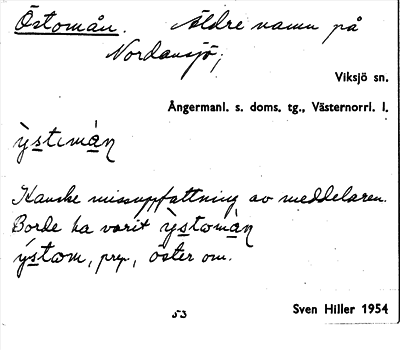 Östomån. Äldre namn på
Nordansjö,
Viksjö sn.
Ångermanl. s. doms. tg., Västernorrl. l.
ỳstımàn
Kanske missuppfattning av meddelaren.
Borde ha varit ỳstomàn
ýstom, prep, öster om.
53
Sven Hiller 1954